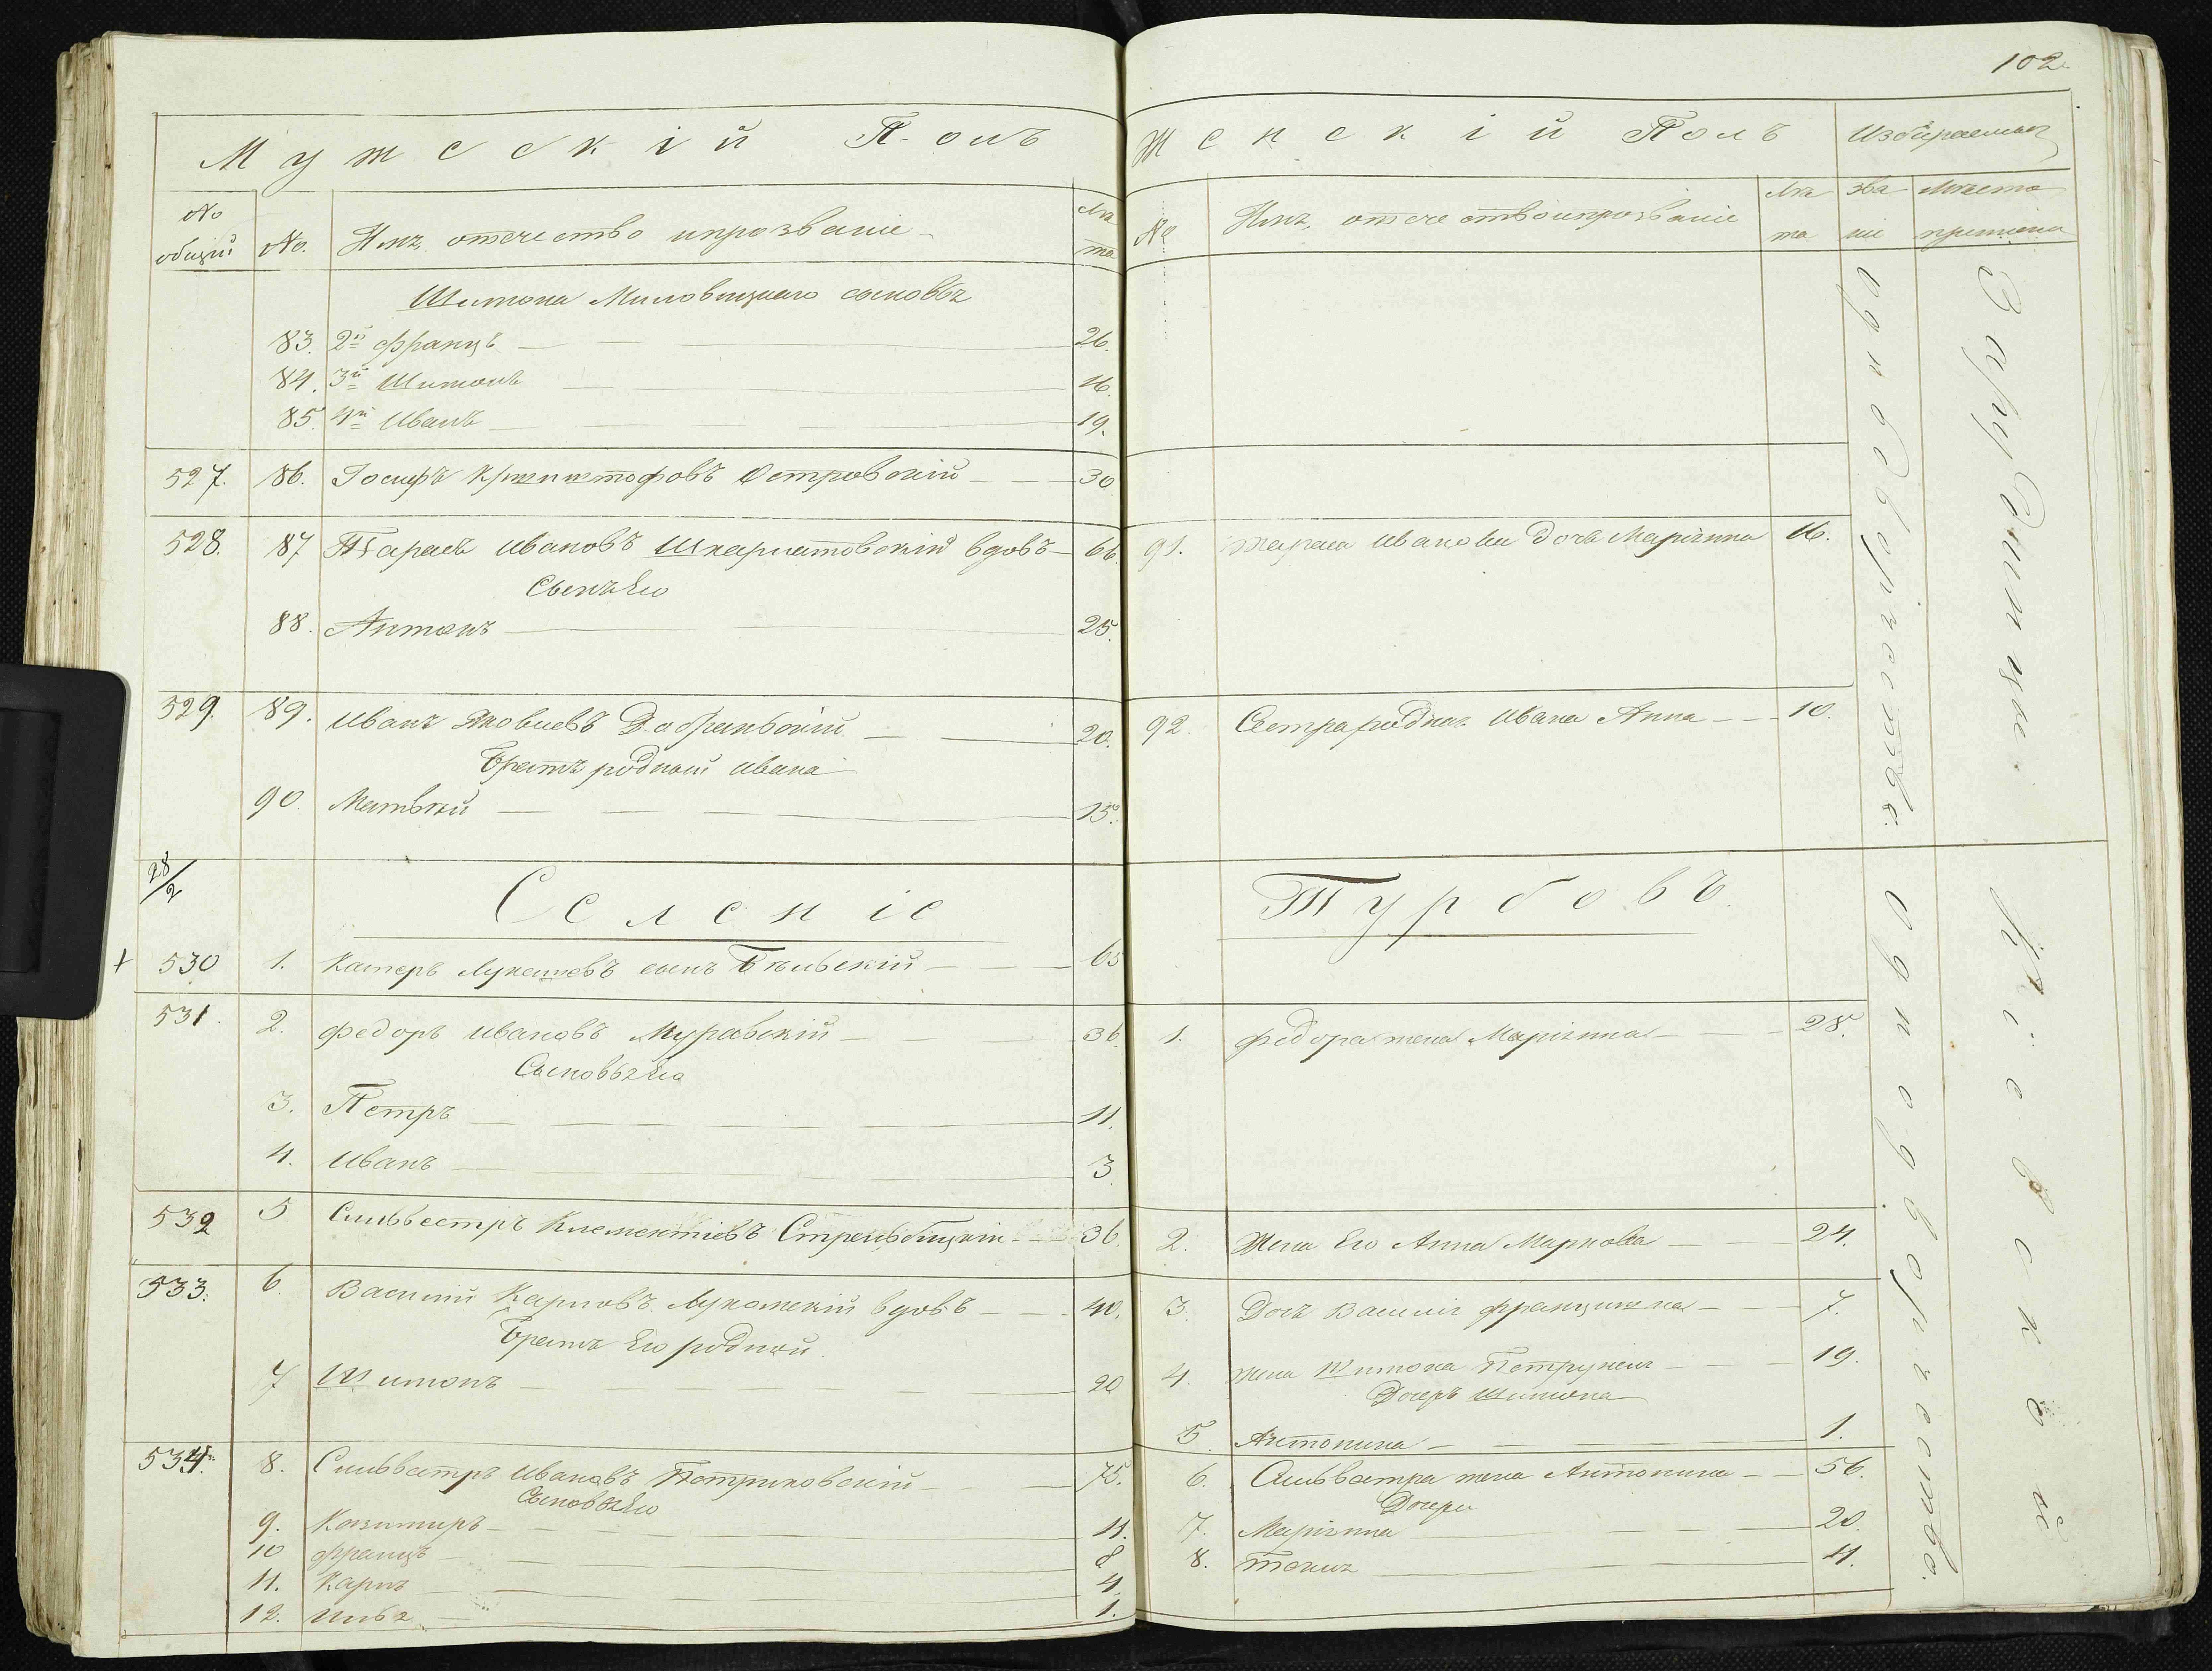 102
Мужеский Полъ
№ общій
№.
Имя, отечество и прозваніе
Лѣта
Шимона Миловицкаго сыновья
83. 2й Францъ 26.
84. 3й Шимонъ 16.
85. 4й Иванъ 19.
527. 86. Іосифъ Кржиштофовъ Островскій 30
528. 87 Тарасъ Ивановъ Шкарнатовскій вдовъ 66.
Сынъ Его
88. Антонъ 25.
529. 89. Иванъ Яковлевъ Добраньскій 20.
Братъ родной Ивана
90. Матвѣй 15.
28/2
Селеніе
+ 530 1. Каспръ Лукашевъ сынъ Бѣльскій 65
531. 2. Федоръ Ивановъ Муравскій 36.
Сыновья Его
3. Петръ 11.
4. Иванъ 3
532 5 Сильвестръ Клементіевъ Стрельбицкій 36.
533. 6. Василій Карповъ Лукомскій вдовъ 40.
Братъ Его родной
7 Шимонъ 20
534. 8. Сильвестръ Ивановъ Петриковскій 75.
Сыновья Его
9. Казимиръ 11.
10 Францъ 8
11. Карпъ 4.
12. Илья 1.
Женскій Полъ
№
Имя, отечество и прозваніе
Лѣта
Избираемыя
званіе
Мѣсто
91. Тараса Иванова дочь Маріянна 16.
92. Сестра родная Ивана Анна 10.
Турбовъ
1. Федора жена Маріянна 28.
2. Жена Его Анна Маркова 24.
3. Дочь Василія Францишка 7.
4. Жена Шимона Петрунеля 19.
Дочерь Шимона
5. Антонина 1.
6. Сильвестра жена Антонина 56.
Дочери
7. Маріянна 20.
8. Текля 4.
Однодворчество.
Зарудинцы.
Однодворчество.
Кіевской